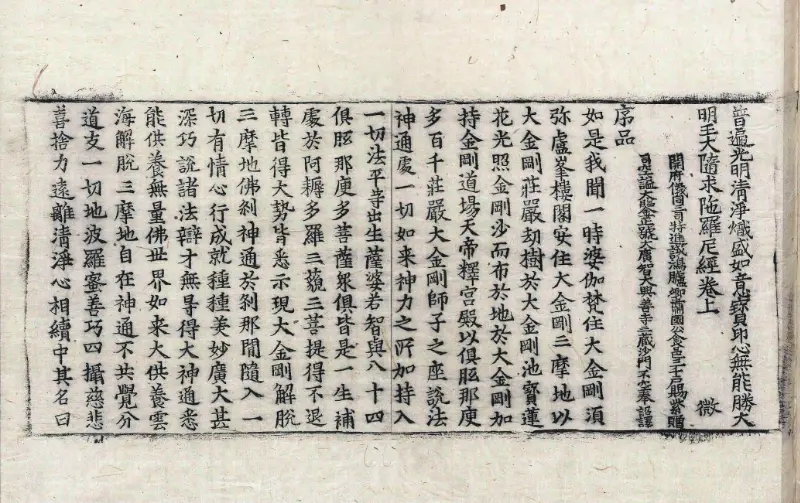 普遍光明清淨熾盛如意寶印心無能勝大
明王大隨求陁羅尼經卷上　微
開府儀同三司特進試鴻臚卿肅國公食邑三千戶賜紫贈
司空諡大鑒正號大廣智大興善寺三藏沙門不空奉 詔譯
序品
如是我聞一時婆伽梵住大金剛須
弥盧峯樓閣安住大金剛三摩地以
大金剛莊嚴劫樹於大金剛池寶蓮
花光照金剛沙而布於地於大金剛加
持金剛道場天帝釋宮殿以俱胝那庾
多百千莊嚴大金剛師子之座說法
神通處一切如來神力之所加持入
一切法平等出生薩婆若智與八十四
俱胝那庾多菩薩衆俱皆是一生補
處於阿耨多羅三藐三菩提得不退
轉皆得大勢皆悉示現大金剛解脫
三摩地佛刹神通於刹那間隨入一
切有情心行成就種種美妙廣大甚
深巧說諸法辯才無㝵得大神通悉
能供養無量佛世界如來大供養雲
海解脫三摩地自在神通不共覺分
道支一切地波羅蜜善巧四攝慈悲
喜捨力遠離清淨心相續中其名曰